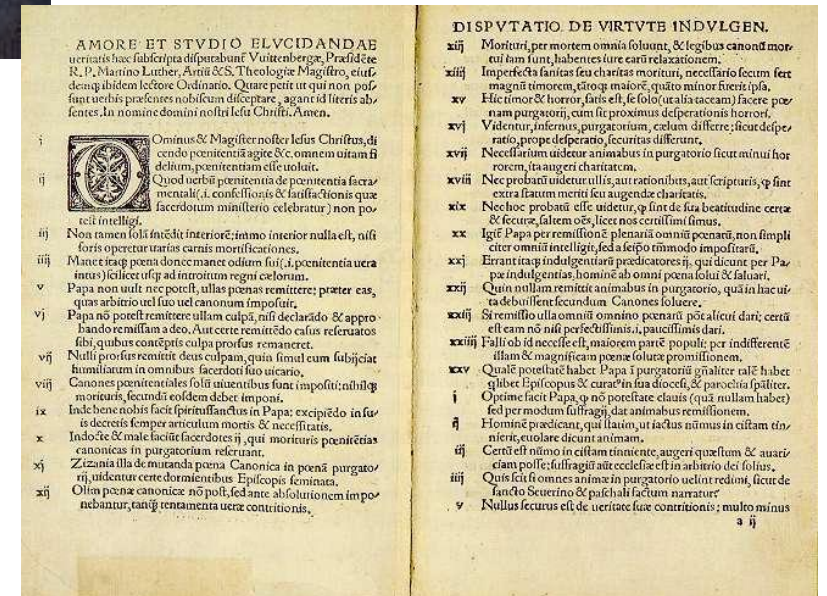 AMORE ET STVDIO ELVCIDANDAE
ueritatis hæc subscripta disputabunt̃ Vuittenbergæ, Præsidẽte
R. P. Martino Luther, Artiũ & S. Theologiæ Magistro, eius/
demq; ibidem lectore Ordinatio. Quare petit ut qui non pos/
sunt uerbis præsentes nobiscum disceptare, agant id literis ab/
sentes. In nomine domini nostri Iesu Christi. Amen.
i Dominus & Magister noster Iesus Christus, di
cendo pœnitentiã agite &c. omnem uitam fi
delium, pœnitentiam esse uoluit.
ij Quod uerbũ pœnitentia de pœnitentia sacra/
mentali (.i. confessionis & satisfactionis quæ
sacerdotum ministerio celebratur) non po/
test intelligi.
iij Non tamen solã intẽdit interiorẽ; immo interior nulla est, nisi
foris operetur uarias carnis mortificationes.
iiij Manet itaq; pœna donec manet odium sui (.i. pœnitentia uera
intus) scilicet usq; ad introitum regni cælorum.
v Papa non uult nec potest, ullas pœnas remittere; præter eas,
quas arbitrio uel suo uel canonum imposuit.
vj Papa nõ potest remittere ullam culpã, nisi declarãdo & appro/
bando remissam a deo. Aut certe remittẽdo casus reseruatos
sibi, quibus contẽptis culpa prorsus remaneret.
vij Nulli prorsus remittit deus culpam, quin simul eum subijciat
humiliatum in omnibus sacerdoti suo uicario.
viij Canones pœnitentiales solũ uiuentibus sunt impositi; nihilq;
morituris, secundũ eosdem debet imponi.
ix Inde bene nobis facit spiritussanctus in Papa: excipiẽdo in su/
is decretis semper articulum mortis & necessitatis.
x Indocte & male faciũt sacerdotes ij, qui morituris pœnitẽtias
canonicas in purgatorium reseruant.
xj Zizania illa de mutanda pœna Canonica in pœnã purgato/
rij, uidentur certe dormientibus Episcopis seminata.
xij Olim pœnæ canonicæ nõ post, sed ante absolutionem impo/
nebantur, tanq̃ tentamenta ueræ contritionis.
DISPVTATIO DE VIRTVTE INDVLGEN.
xiij Morituri, per mortem omnia soluunt, & legibus canonũ mor/
tui iam sunt, habentes iure earũ relaxationem.
xiiij Imperfecta sanitas seu charitas morituri, necessario secum fert
magnũ timorem, tãtoq; maiorẽ, quãto minor fuerit ipsa.
xv Hic timor & horror, satis est, se solo (ut alia taceam) facere pœ/
nam purgatorij, cum sit proximus desperationis horrori.
xvj Videntur, infernus, purgatorium, cælum differre; sicut despe/
ratio, prope desperatio, securitas differunt.
xvij Necessarium uidetur animabus in purgatorio sicut minui hor
rorem, ita augeri charitatem.
xviij Nec probatũ uidetur ullis, aut rationibus, aut scripturis, q̃ sint
extra statum meriti seu augendæ charitatis.
xix Nec hoc probatũ esse uidetur, q̃ sint de sua beatitudine certæ
& securæ, saltem oẽs, licet nos certissimi simus.
xx Igit̃ Papa per remissionẽ plenariã omniũ pœnarũ, non simpli
citer omniũ intelligit, sed a seipo tm̃modo impositarũ.
xxj Errant itaq; indulgentiarũ prædicatores ij, qui dicunt per Pa/
pæ indulgentias, hominẽ ab omni pœna solui & saluari.
xxij Quin nullam remittit animabus in purgatorio, quã in hac ui/
ta debuissent secundum Canones soluere.
xxiij Si remissio ulla omniũ omnino pœnarũ põt alicui dari; certũ
est eam nõ nisi perfectissimis .i. paucissimis dari.
xxiiij Falli ob id necesse est, maiorem partẽ populi; per indifferentẽ
illam & magnificam pœnæ solutæ promissionem.
xxv Qualẽ potestatẽ habet Papa ĩ purgatoriũ gñaliter talẽ habet
q̃libet Episcopus & curat⁹ in sua diocesi, & parochia sp̃aliter.
i Optime facit Papa, q̃ nõ potestate clauis (quã nullam habet)
sed per modum suffragij, dat animabus remissionem.
ij Hominẽ prædicant, qui statim, ut iactus nũmus in cistam tin/
nierit, euolare dicunt animam.
iij Certũ est nũmo in cistam tinniente, augeri quæstum & auari/
ciam posse; suffragiũ aũt ecclesiæ est in arbitrio dei solius.
iiij Quis scit si omnes animæ in purgatorio uelint redimi, sicut de
sancto Seuerino & paschali factum narratur.
v Nullus securus est de ueritate suæ contritionis; multo minus
a ij